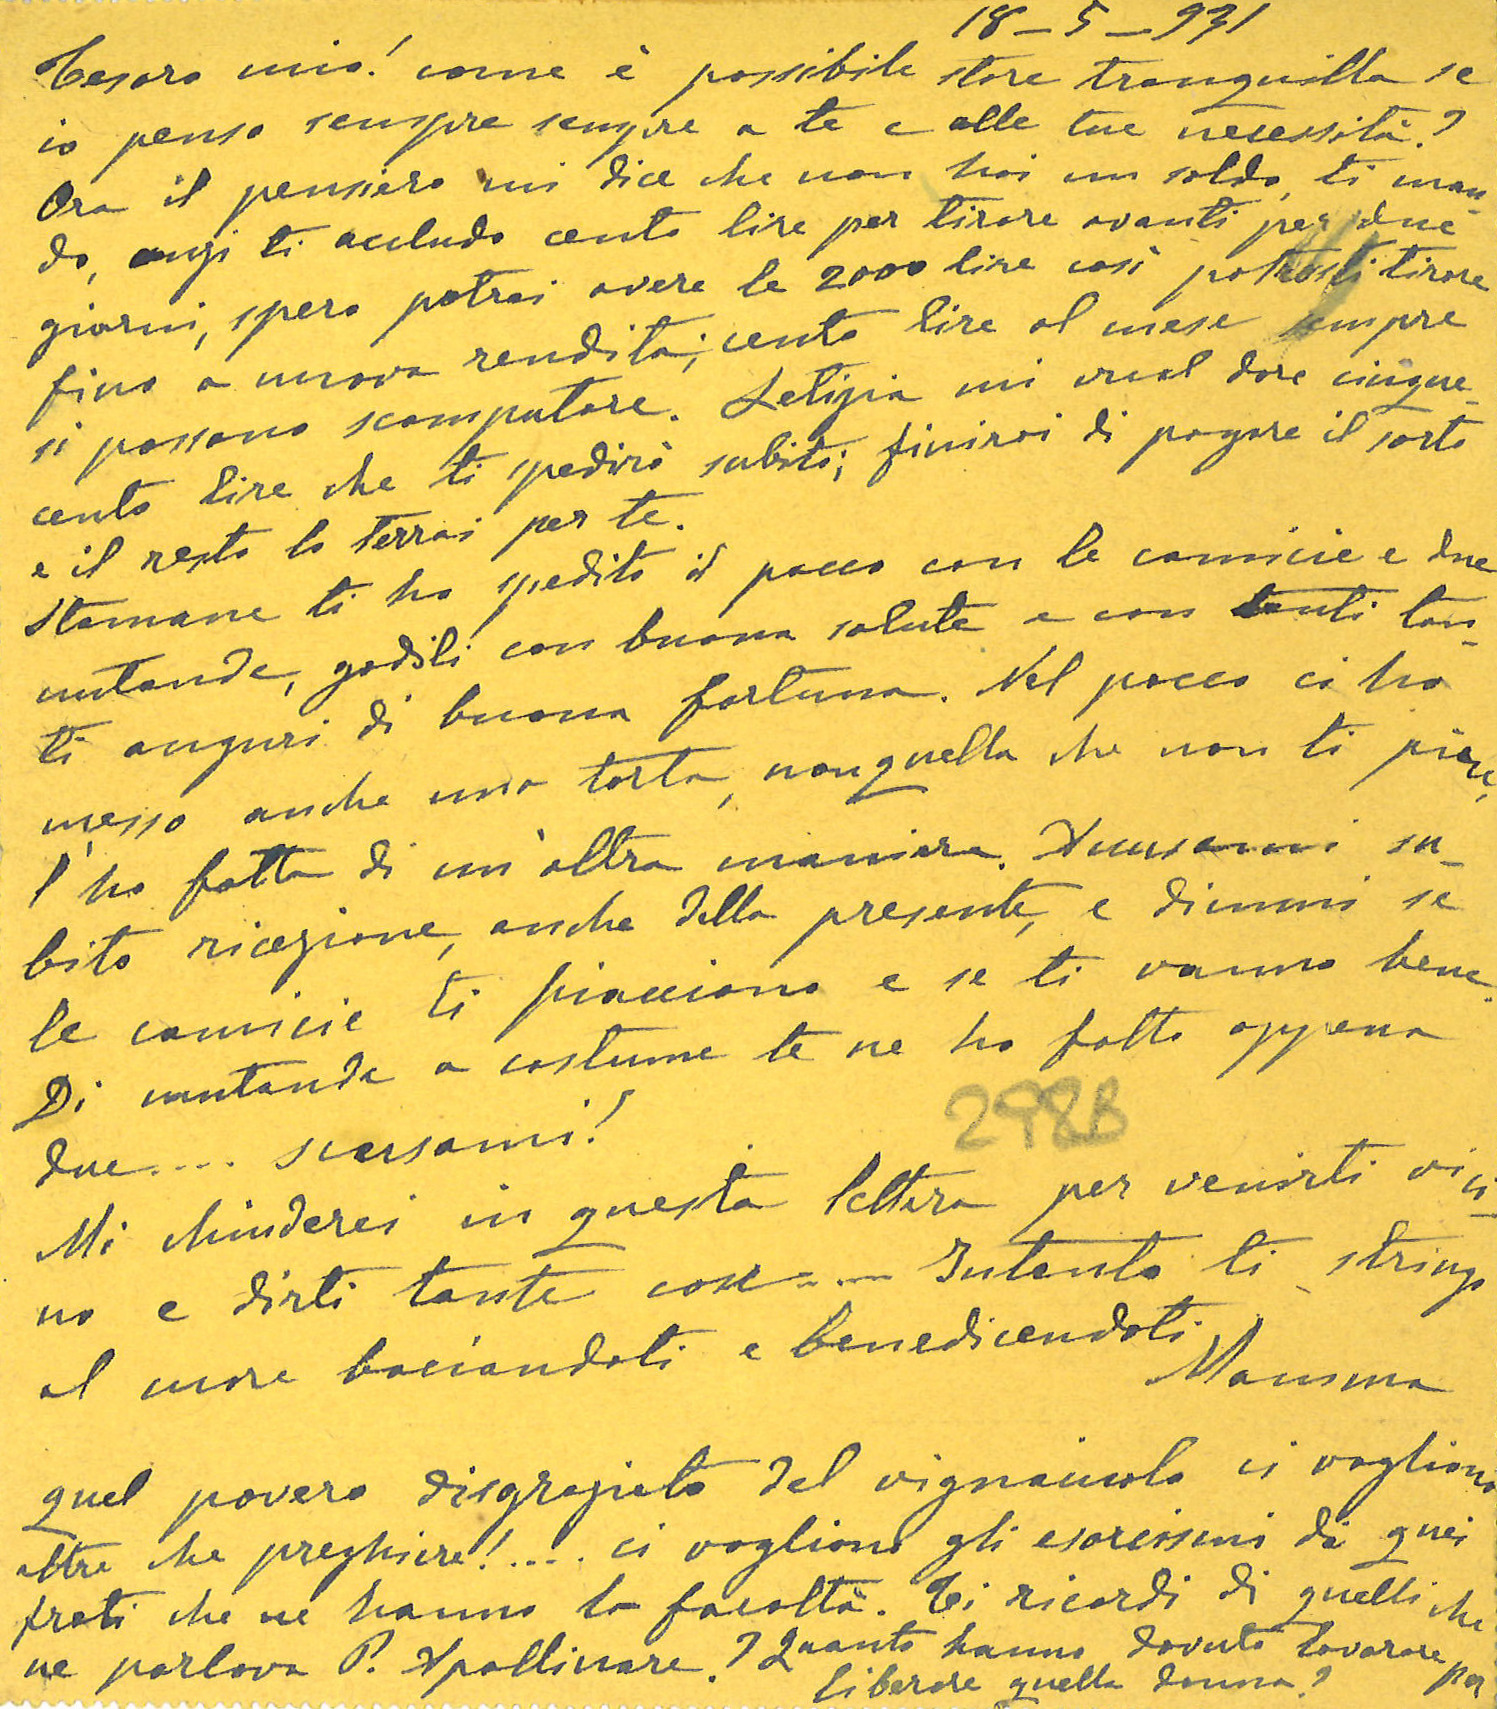 18-5-931
Tesoro mio! come è possibile stare tranquilla se
io penso sempre sempre a te e alle tue necessità?
Ora il pensiero mi dice che non hai un soldo, ti man-
do, anzi ti accludo cento lire per tirare avanti per due
giorni, spero potrai avere le 2000 lire così potresti tirare
fino a nuova rendita; cento lire al mese sempre
si possono scomputare. Letizia mi vuol dare cinque-
cento lire che ti spedirò subito; finirai di pagare il sarto
e il resto lo terrai per te.
Stamane ti ho spedito il pacco con le camicie e due
mutande, goditi con buona salute e con tanti tan-
ti auguri di buona fortuna. Nel pacco ci ho
messo anche una torta, non quella che non ti piace,
l'ho fatta di un'altra maniera. Accusami su-
bito ricezione, anche della presente, e dimmi se
le camicie ti piacciono e se ti vanno bene.
Di mutande a costume te ne ho fatto appena
due.... scusami!
298B
Mi chiuderei in questa lettera per venirti vici-
no e dirti tante cose.... Intanto ti stringo
al cuore baciandoti e benedicendoti
Mamma
Quel povero disgraziato del vignaiuolo ci vogliono
altro che preghiere!.... ci vogliono gli esorcismi da quei
frati che ne hanno la facoltà. Ti ricordi di quelli che
ne parlava P. Apollinare? Quanto hanno dovuto lavorare per
liberare quella donna?